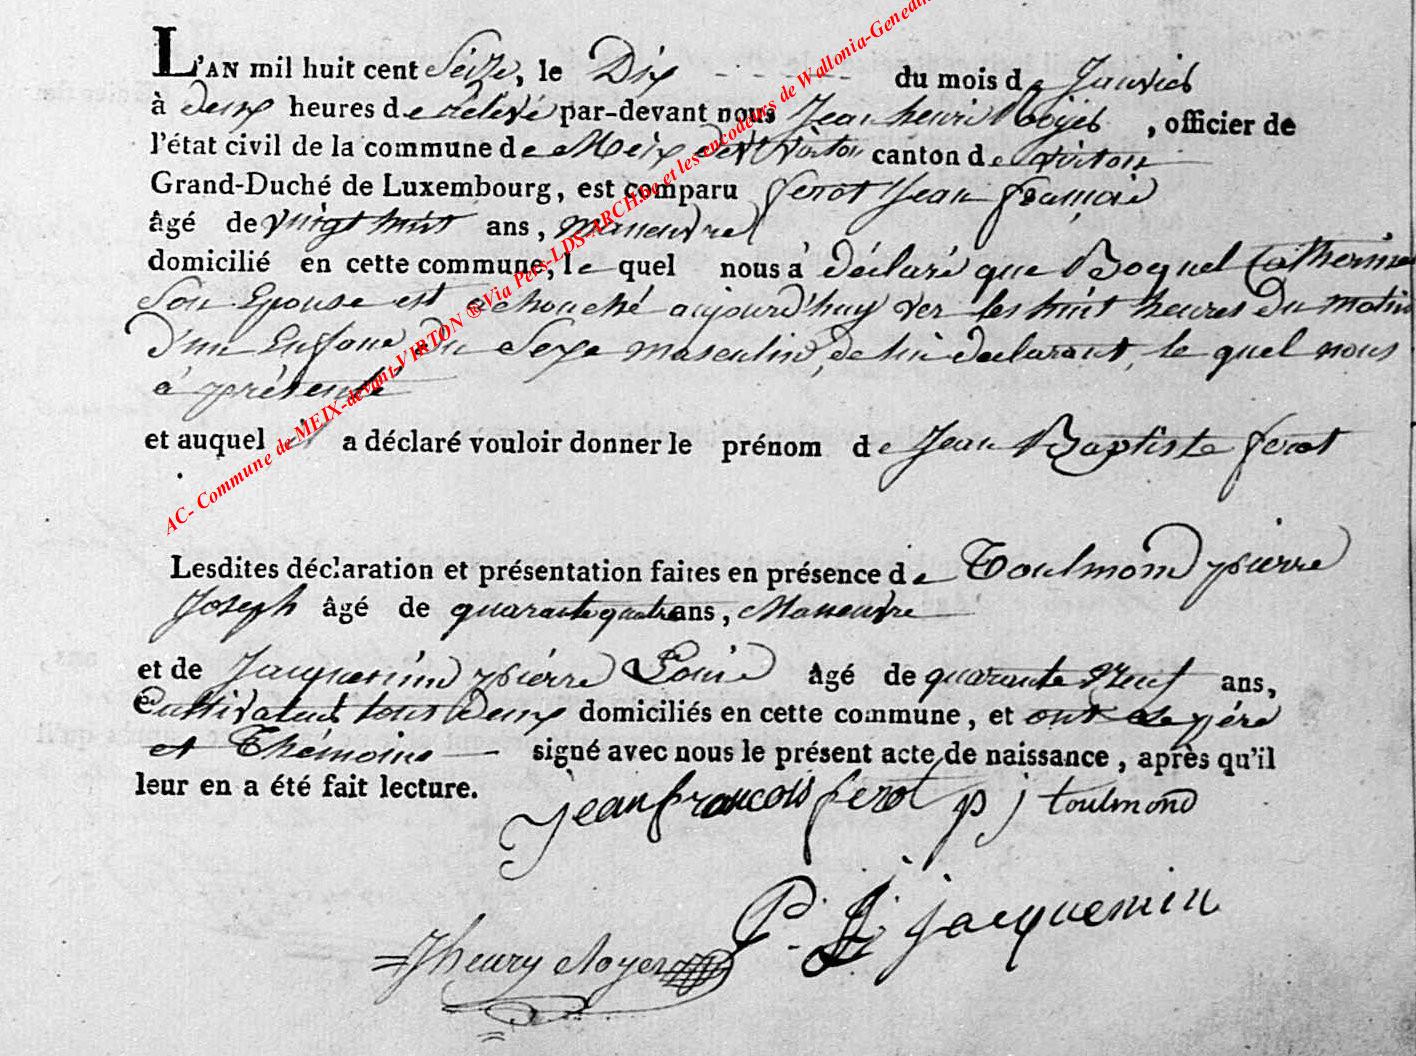 L'AN mil huit cent Seize, le Dix - - - - - du mois de Janvier
à deux heures de relevé par-devant nous Jean henri Noyer, officier de
l'état civil de la commune de Meix devt virton canton de virton
Grand-Duché de Luxembourg, est comparu ferot Jean françois
âgé de vingt huit ans, maneuvre
domicilié en cette commune, le quel nous a déclaré que Boquel Catherine
Son Epouse est achouché aujourd'huy ver les huit heures du matin
D'un Enfant du Sexe masculin, de lui declarant, le quel nous
à présenté
et auquel il a déclaré vouloir donner le prénom de Jean Baptiste ferot
Lesdites déclaration et présentation faites en présence de Toulmond pierre
Joseph âgé de quarante quatre ans, Maneuvre
et de Jacquemin pierre Louis âgé de quarante Neuf ans,
Cultivateur tous deux domiciliés en cette commune, et ont le péré
et Thémoins signé avec nous le présent acte de naissance, après qu'il
leur en a été fait lecture.
jean francois ferot p j toulmond
P. L. jacquemin
Jhenry Noyer
AC- Commune de MEIX-devant-VIRTON ®Via Pers-LDS-ARCH.be et les encodeurs de Wallonia-Genedin